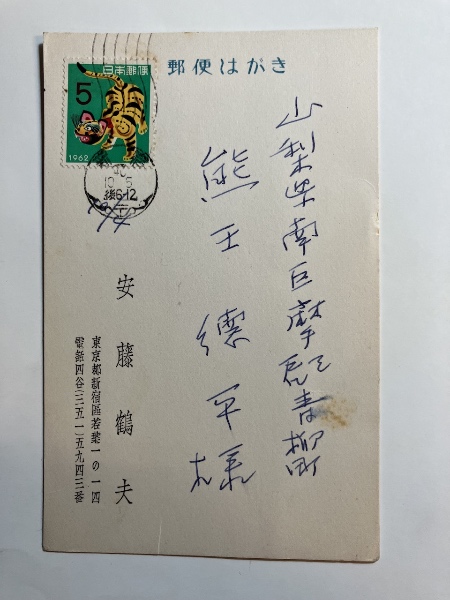 郵便はがき
日本郵便
5
1962
40
10.5
後6-12
山梨県南巨摩郡青柳町
熊王徳平様
安藤鶴夫
東京都新宿區若葉一の一四
電話四谷(三五一)五九四三番